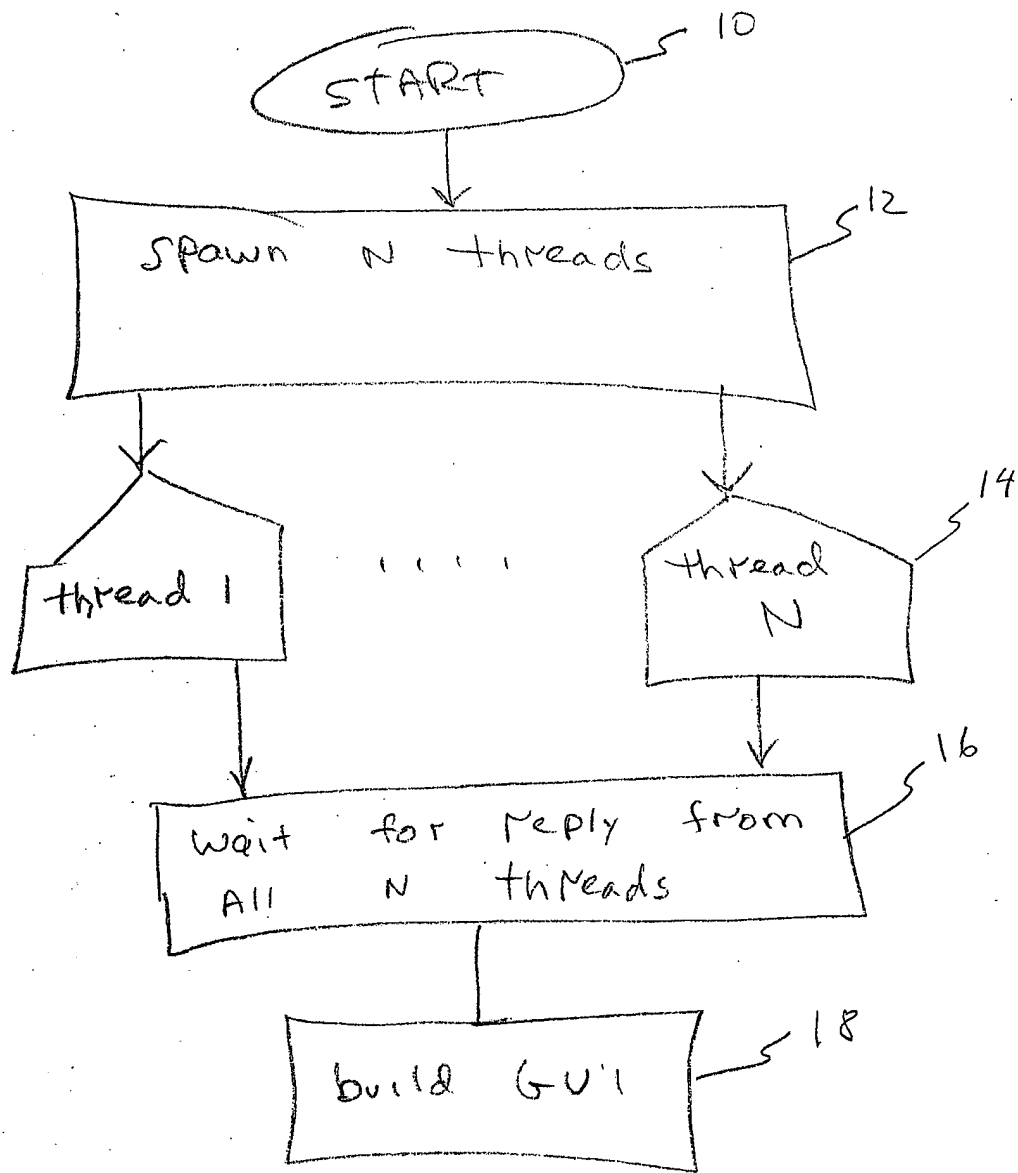 10
START
12
spawn N threads
14
thread 1
. . . .
thread
N
16
wait for reply from
All N threads
18
build GUI